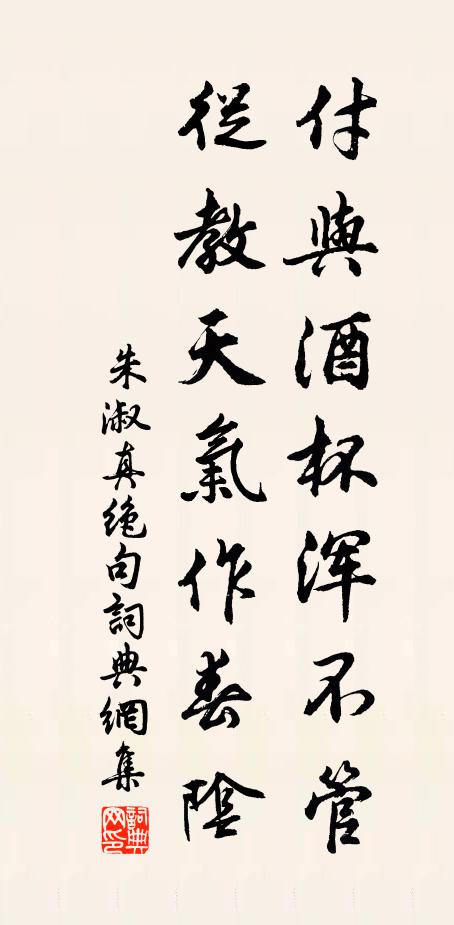 付與酒杯渾不管
從教天氣作春陰
朱淑真绝句詞典網集
詞典网印